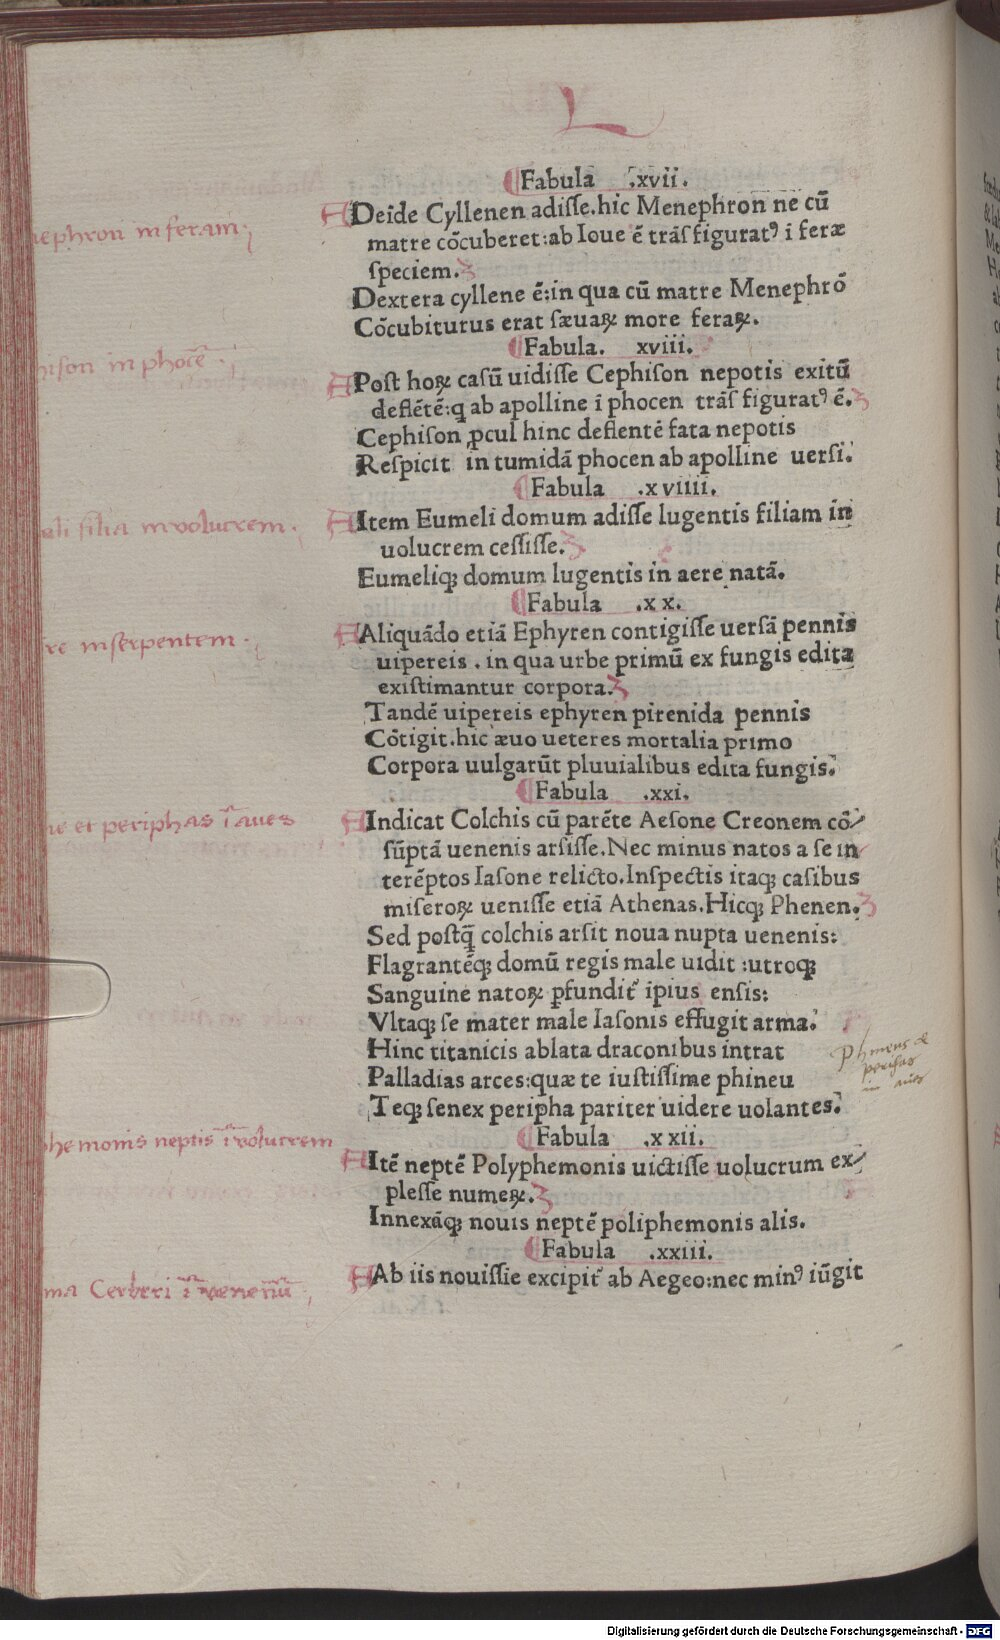 L
Fabula .xvii.
Deide Cyllenen adiſſe.hic Menephron ne cū
matre cōcuberet:ab Ioue ē trāſfiguratꝰ i feræ
ſpeciem.
Dextera cyllene ē:in qua cū matre Menephrō
Cōcubiturus erat ſæuaꝝ more feraꝝ.
Fabula. xviii.
Poſt hoꝝ caſū uidiſſe Cephiſon nepotis exitū
deflētē:q ab apolline ī phocen trāſ figuratꝰ ē.
Cephiſon ꝓcul hinc deflentē fata nepotis
Reſpicit in tumidā phocen ab apolline uerſi.
Fabula .xviiii.
Item Eumeli domum adiſſe lugentis filiam in
uolucrem ceſſiſſe.
Eumeliqꝫ domum lugentis in aere natā.
Fabula .xx.
Aliquādo etiā Ephyren contigiſſe uerſā pennis
uipereis . in qua urbe primū ex fungis edita
exiſtimantur corpora.
Tandē uipereis ephyren pirenida pennis
Cōtigit.hic æuo ueteres mortalia primo
Corpora uulgarūt pluuialibus edita fungis.
Fabula .xxi.
Indicat Colchis cū parēte Aeſone Creonem cō
ſūptā uenenis arſiſſe.Nec minus natos a ſe in
terēptos Iaſone relicto.Inſpectis itaqꝫ caſibus
miſeroꝝ ueniſſe etiā Athenas.Hicqꝫ Phenen.
Sed poſtq̄ colchis arſit noua nupta uenenis:
Flagrantēqꝫ domū regis male uidit :utroqꝫ
Sanguine natoꝝ ꝑfundit̉ ipius enſis:
Vltaqꝫ ſe mater male Iaſonis effugit arma.
Hinc titanicis ablata draconibus intrat
Palladias arces:quæ te iuſtiſſime phineu
Teqꝫ ſenex peripha pariter uidere uolantes.
Fabula .xxii.
Itē neptē Polyphemonis uictiſſe uolucrum ex
pleſſe numeꝝ.
Innexāqꝫ nouis neptē poliphemonis alis.
Fabula .xxiii.
Ab iis nouiſſie excipit̉ ab Aegeo:nec minꝰ iūgit
ephron in feram
in phocē
filia in volucrem
re in serpentem
et periphas ī aves
hemonis neptis ī volucrem
ma Cerberi ī venenū
Phineus &
periphas
in aues
Digitalisierung gefördert durch die Deutsche Forschungsgemeinschaft - DFG